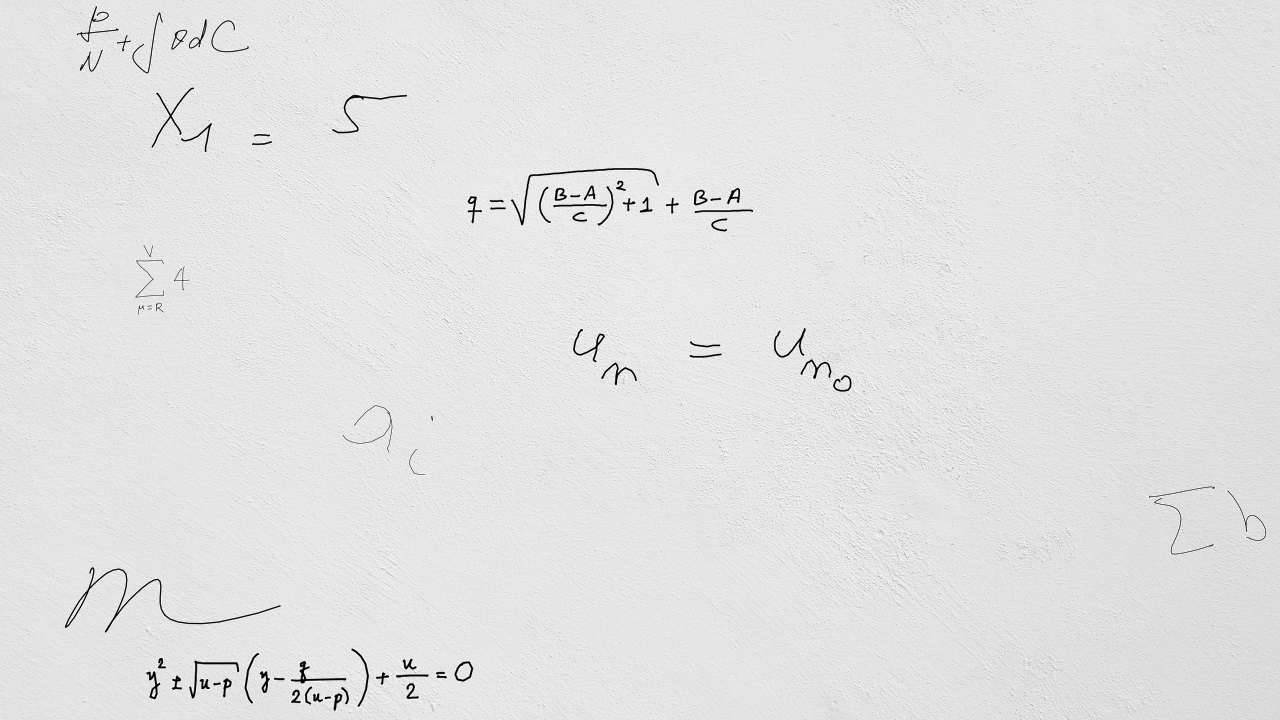 \frac{p}{N} + \int \theta d C
X_1 = 5
q = \sqrt{\left(\frac{B-A}{C}\right)^2 + 1} + \frac{B-A}{C}
\sum_{\mu=R}^{V} 4
u_n = u_{n_0}
a_i
\sum b
m
y^2 \pm \sqrt{u-p} \left( y - \frac{q}{2(u-p)} \right) + \frac{u}{2} = 0